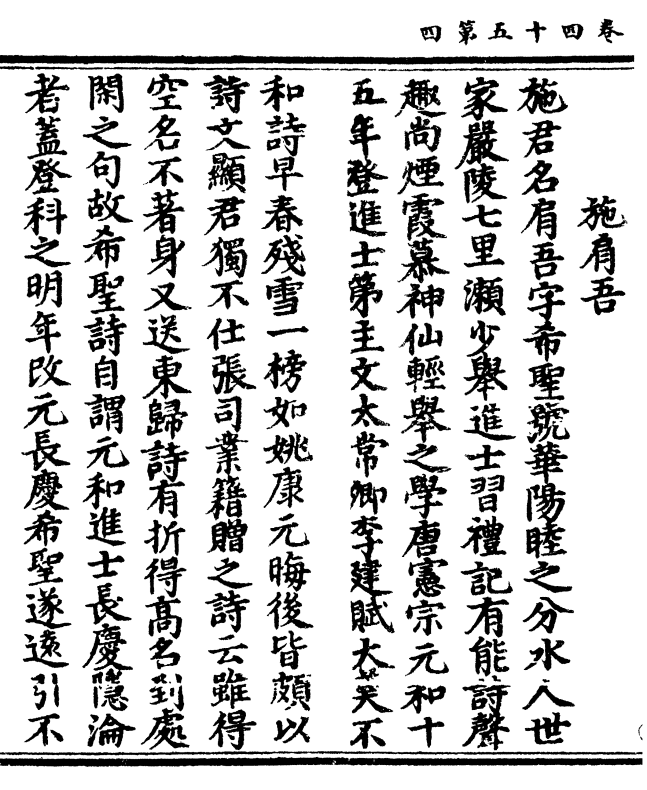 卷四十五第四
施肩吾
施君名肩吾字希聖號華陽睦之分水人世
家嚴陵七里瀨少舉進士習禮記有能詩聲
趣尚煙霞慕神仙輕舉之學唐憲宗元和十
五年登進士第主文太常卿李建賦大羹不
和詩早春殘雪一榜如姚康元晦後皆頗以
詩文顯君獨不仕張司業籍贈之詩云雖得
空名不著身又送東歸詩有折得高名到處
閑之句故希聖詩自謂元和進士長慶隱淪
者蓋登科之明年改元長慶希聖遂遠引不